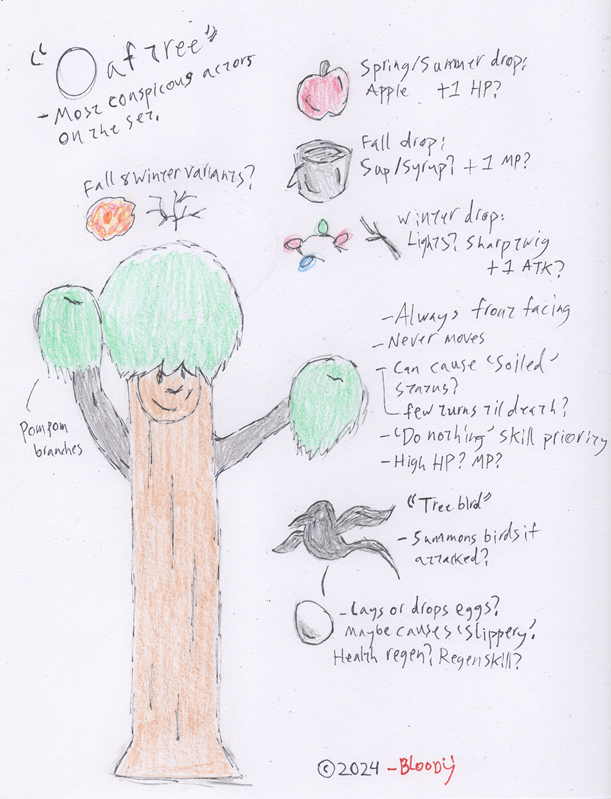 "Oaf Tree"
- Most conspicous actors
on the set.
Fall & Winter variants?
Pompom
branches
Spring/Summer drop:
Apple +1 HP?
Fall drop:
Sap/Syrup? +1 MP?
Winter drop:
Lights? Sharp twig
+1 ATK?
- Always front facing
- Never moves
- Can cause 'Soiled'
status?
few turns til death?
- 'Do nothing' skill priority
- High HP? MP?
"Tree bird"
- Summons birds if
attacked?
- Lays or drops eggs?
Maybe causes 'slippery'.
Health regen? Regen skill?
©2024 - Bloody